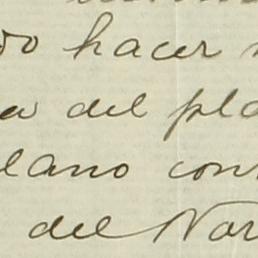 do hacer
a del pla
lano con
del Nar